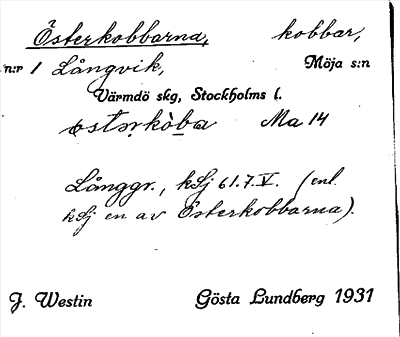 Österkobbarna, kobbar,
n:r 1 Långvik, Möja s:n
Värmdö skg, Stockholms l.
östərkòba Ma 14
Långgr., kSj 61.7.V. (enl.
kSj en av Österkobbarna).
J. Westin Gösta Lundberg 1931